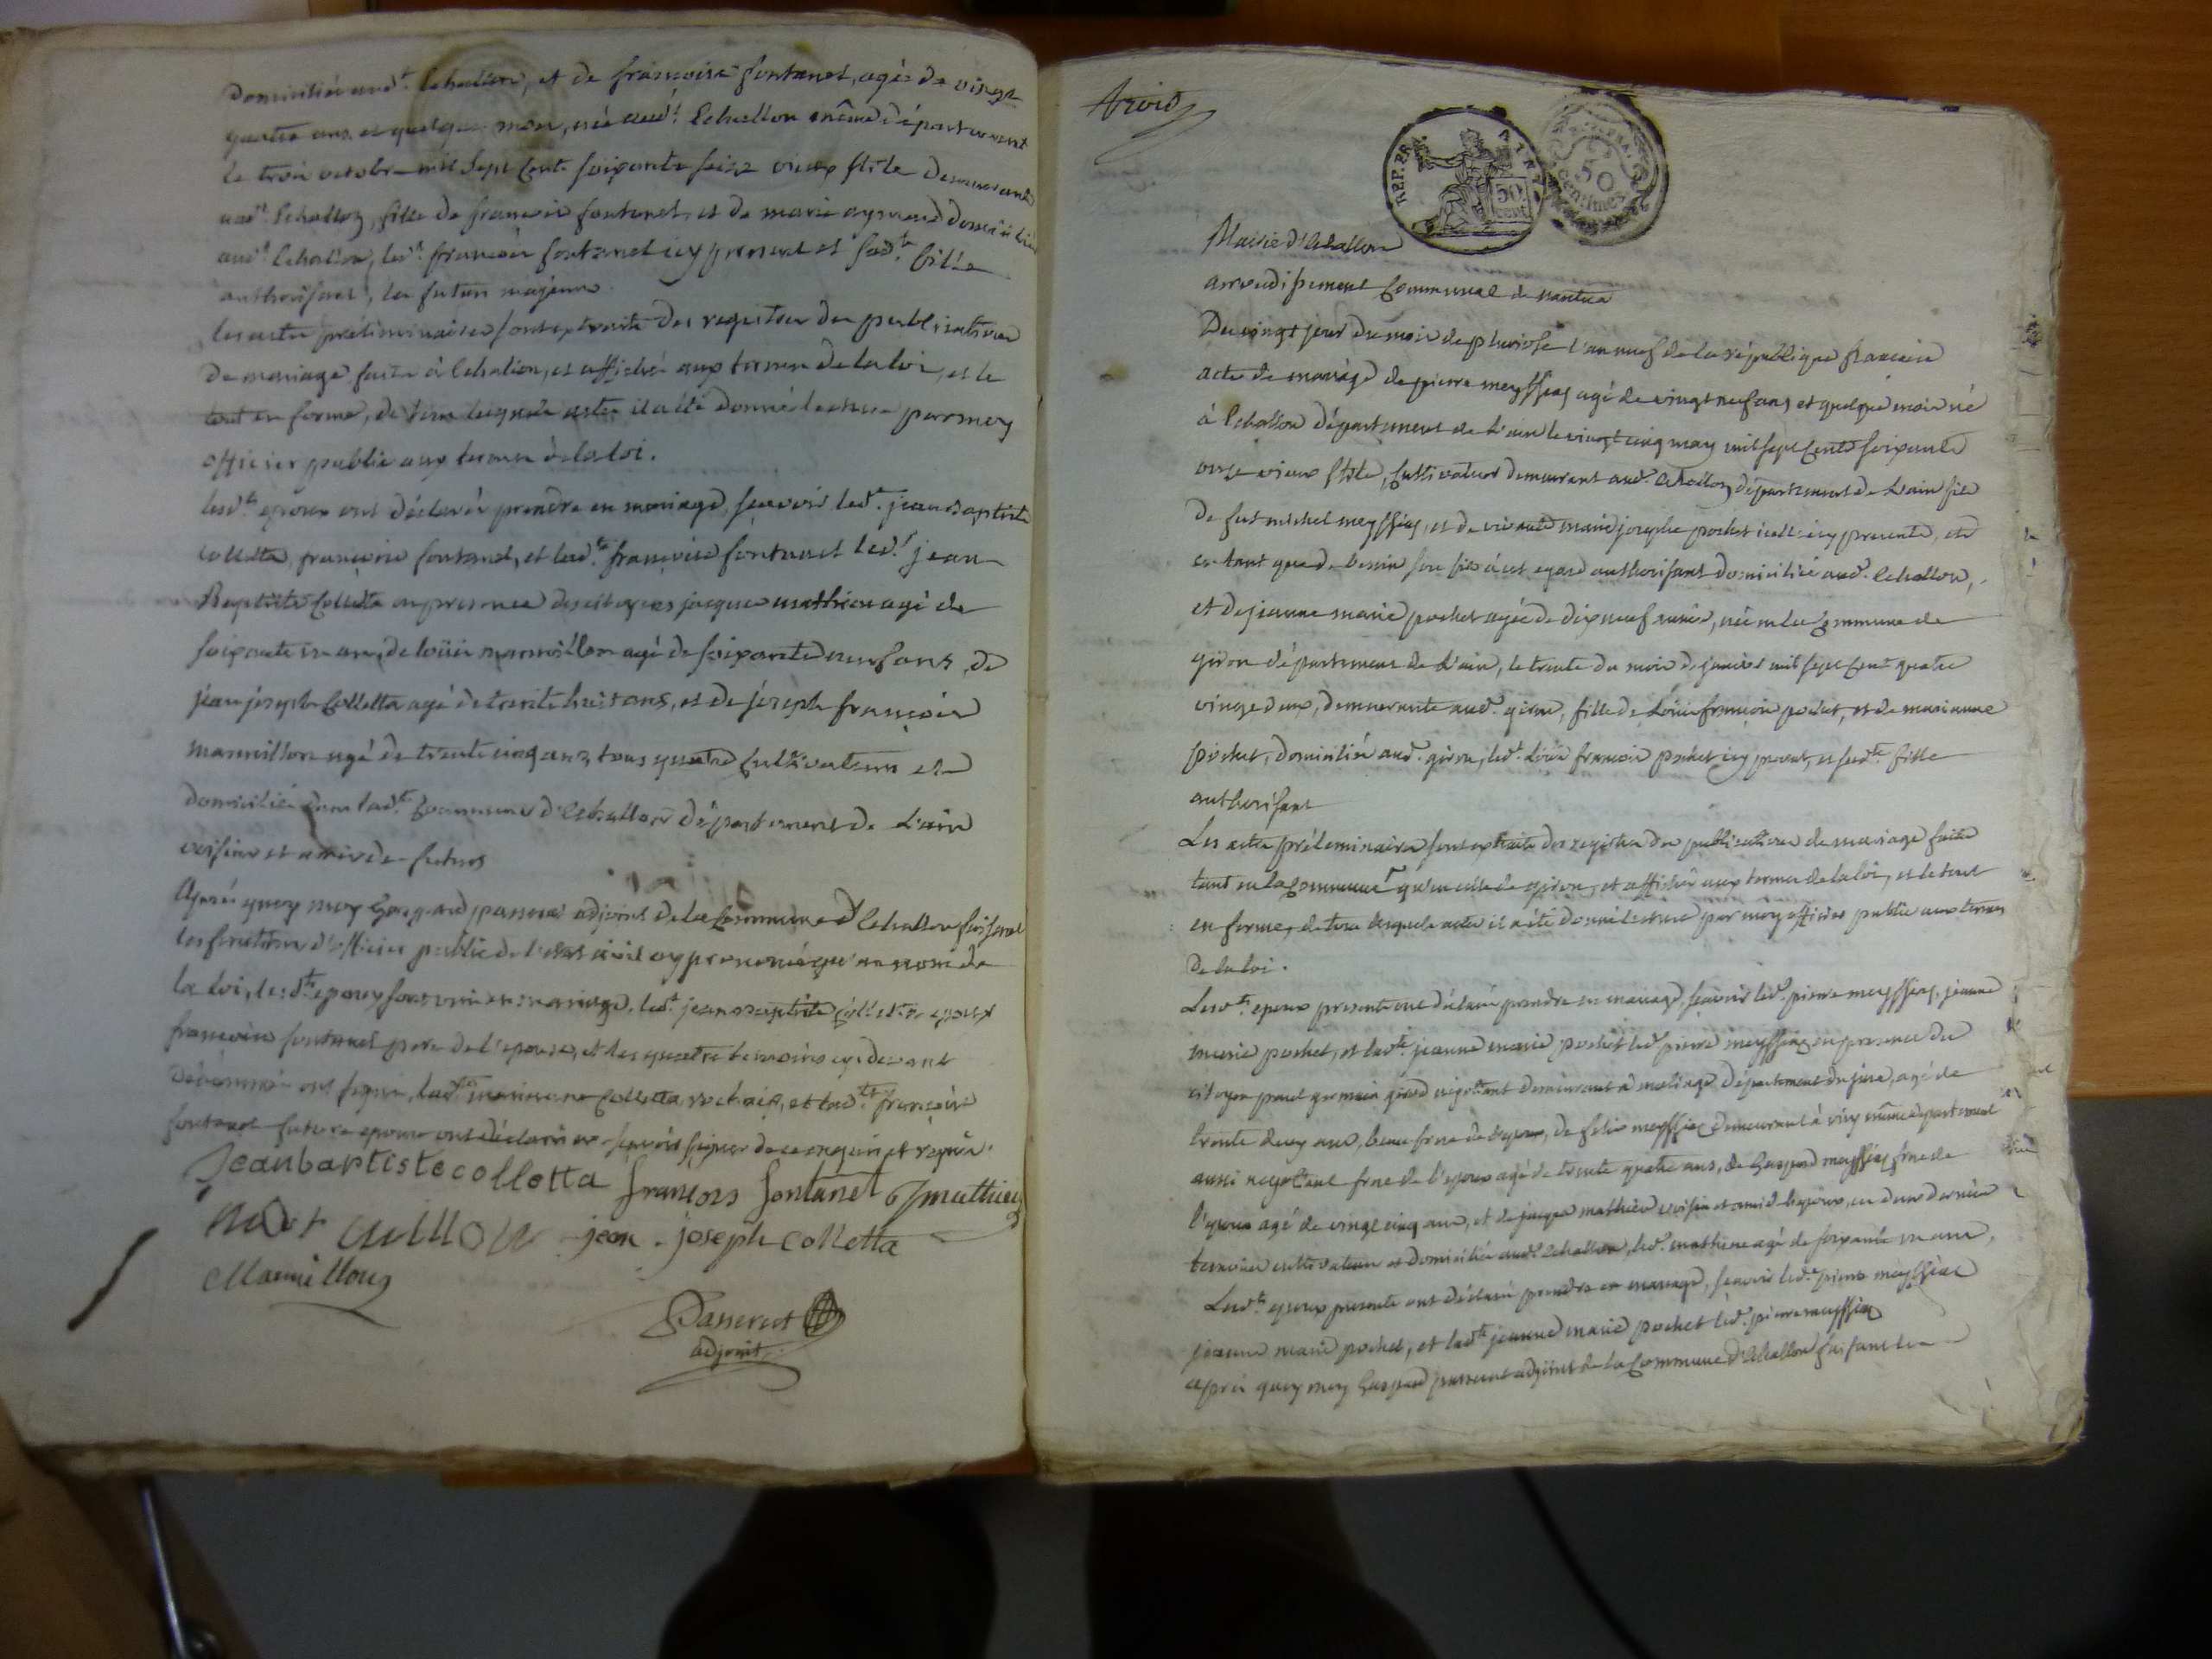 domiciliés aud.t Echallon, et de françoise fontanet, agée de vingt
quatre ans et quelque mois, née aud.t Echallon même département
le trois octobre mil sept cent soixante seize vieux stile demeurante
aud.t Echallon, fille de françois fontanet, et de marie domiciliés
aud.t Echallon, led.t françois fontanet icy présent et sad.te fille
authorisant, les futurs majeurs
les actes préliminaires sont extraits des registres des publications
de mariage faites à Echallon, et affichés aux termes de la loi, et le
tout en forme, de tous lesquels actes il a été donné lecture par moy
officier public aux termes de la loi.
lesd.ts epoux ont déclarés prendre en mariage, sçavoir led.t jean Baptiste
colletta françoise fontanet, et lad.te françoise fontanet led.t jean
Baptiste Colletta en presence des citoyens jacques mathieu agé de
soixante un ans, de loüis marmillon agé de soixante neuf ans, de
jean joseph Colletta agé de trente huit ans, et de joseph françois
marmillon agé de trente cinq ans, tous quatre cultivateurs et
domiciliés dans lad.te Commune d'Echallon département de L'ain
voisins et amis des futurs
Après quoy moy Gaspard passerat adjoint de la Commune d'Echallon faisant
les fonctions d'officier public de l'etat civil ay prononcé qu'au nom de
la loi, lesd.ts epoux sont unis en mariage. led.t jean Baptiste Colletta epoux
françois fontanet pere de l'epouse, et les quatre temoins cy devant
dénommés ont signés, lad.te marianne Colletta et lad.te françoise
fontanet future epouse ont déclarés ne sçavoir signer de ce enquis et requis.
Jeanbaptistecolletta françois fontanet J mathieu
marmillon jean joseph colletta
Marmillon
Passerat
adjoint
trois
REP. FRA.
50 cent
50 centimes
Mairie d'Echallon
arrondissement Communal de nantua
Du vingt jour du mois de pluviose l'an neuf de la république française
acte de mariage de pierre meyssiaz agé de vingt neuf ans et quelque mois né
à Echallon département de L'ain le vingt cinq may mil sept cents soixante
onze vieux stile, Cultivateur demeurant aud.t Echallon département de L'ain fils
de fut michel meyssiaz, et de vivante marie josephe pochet icelle icy presente, et
en tant que de besoin son fils à cet egard authorisant domiciliés aud.t Echallon,
et de jeanne marie pochet agée de dix neuf ans, née en la Commune de
giron département de L'ain, le trente du mois de janvier mil sept cent quatre
vingt deux, demeurante aud.t giron, fille de Loüis françois pochet, et de marianne
pochet, domiciliés aud.t giron, led.t Loüis françois pochet icy present, et sad.te fille
authorisant
Les actes préliminaires sont extraits des registres des publications de mariage faites
tant en la Commune qu'en celle de giron, et affichés aux termes de la loi, et le tout
en forme, de tous lesquels actes il a été donné lecture par moy officier public aux termes
de la loi.
Lesd.ts epoux presents ont déclaré prendre en mariage, sçavoir led.t pierre meyssiaz, jeanne
marie pochet, et lad.te jeanne marie pochet led.t pierre meyssiaz en presence du
citoyen paul germain negotiant demeurant à molinge département du jura, agé de
trente deux ans, beau frere de l'epoux, de felix meyssiaz demeurant à viry même département
aussi negotiant frere de l'epoux agé de trente quatre ans, de Gaspard meyssiaz frere de
l'epoux agé de vingt cinq ans, et de jacques mathieu voisin et ami de l'epoux, ces deux derniers
temoins cultivateurs et domiciliés aud.t Echallon, led.t mathieu agé de soixante un ans,
Lesd.ts epoux presents ont déclaré prendre en mariage, sçavoir led.t pierre meyssiaz
jeanne marie pochet, et lad.te jeanne marie pochet led.t pierre meyssiaz
après quoy moy Gaspard passerat adjoint de la Commune d'Echallon faisant les